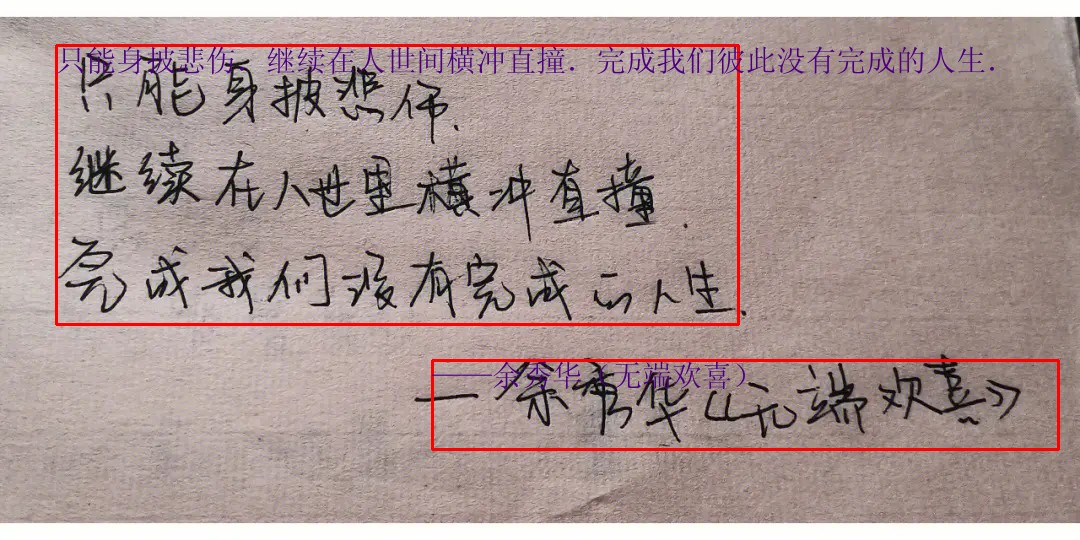 只能身披悲伤．继续在人世间横冲直撞．完成我们彼此没有完成的人生．
只能身披悲伤.
继续在人世里横冲直撞.
完成我们没有完成的人生.
——余秀华（无端欢喜）
—余秀华《无端欢喜》